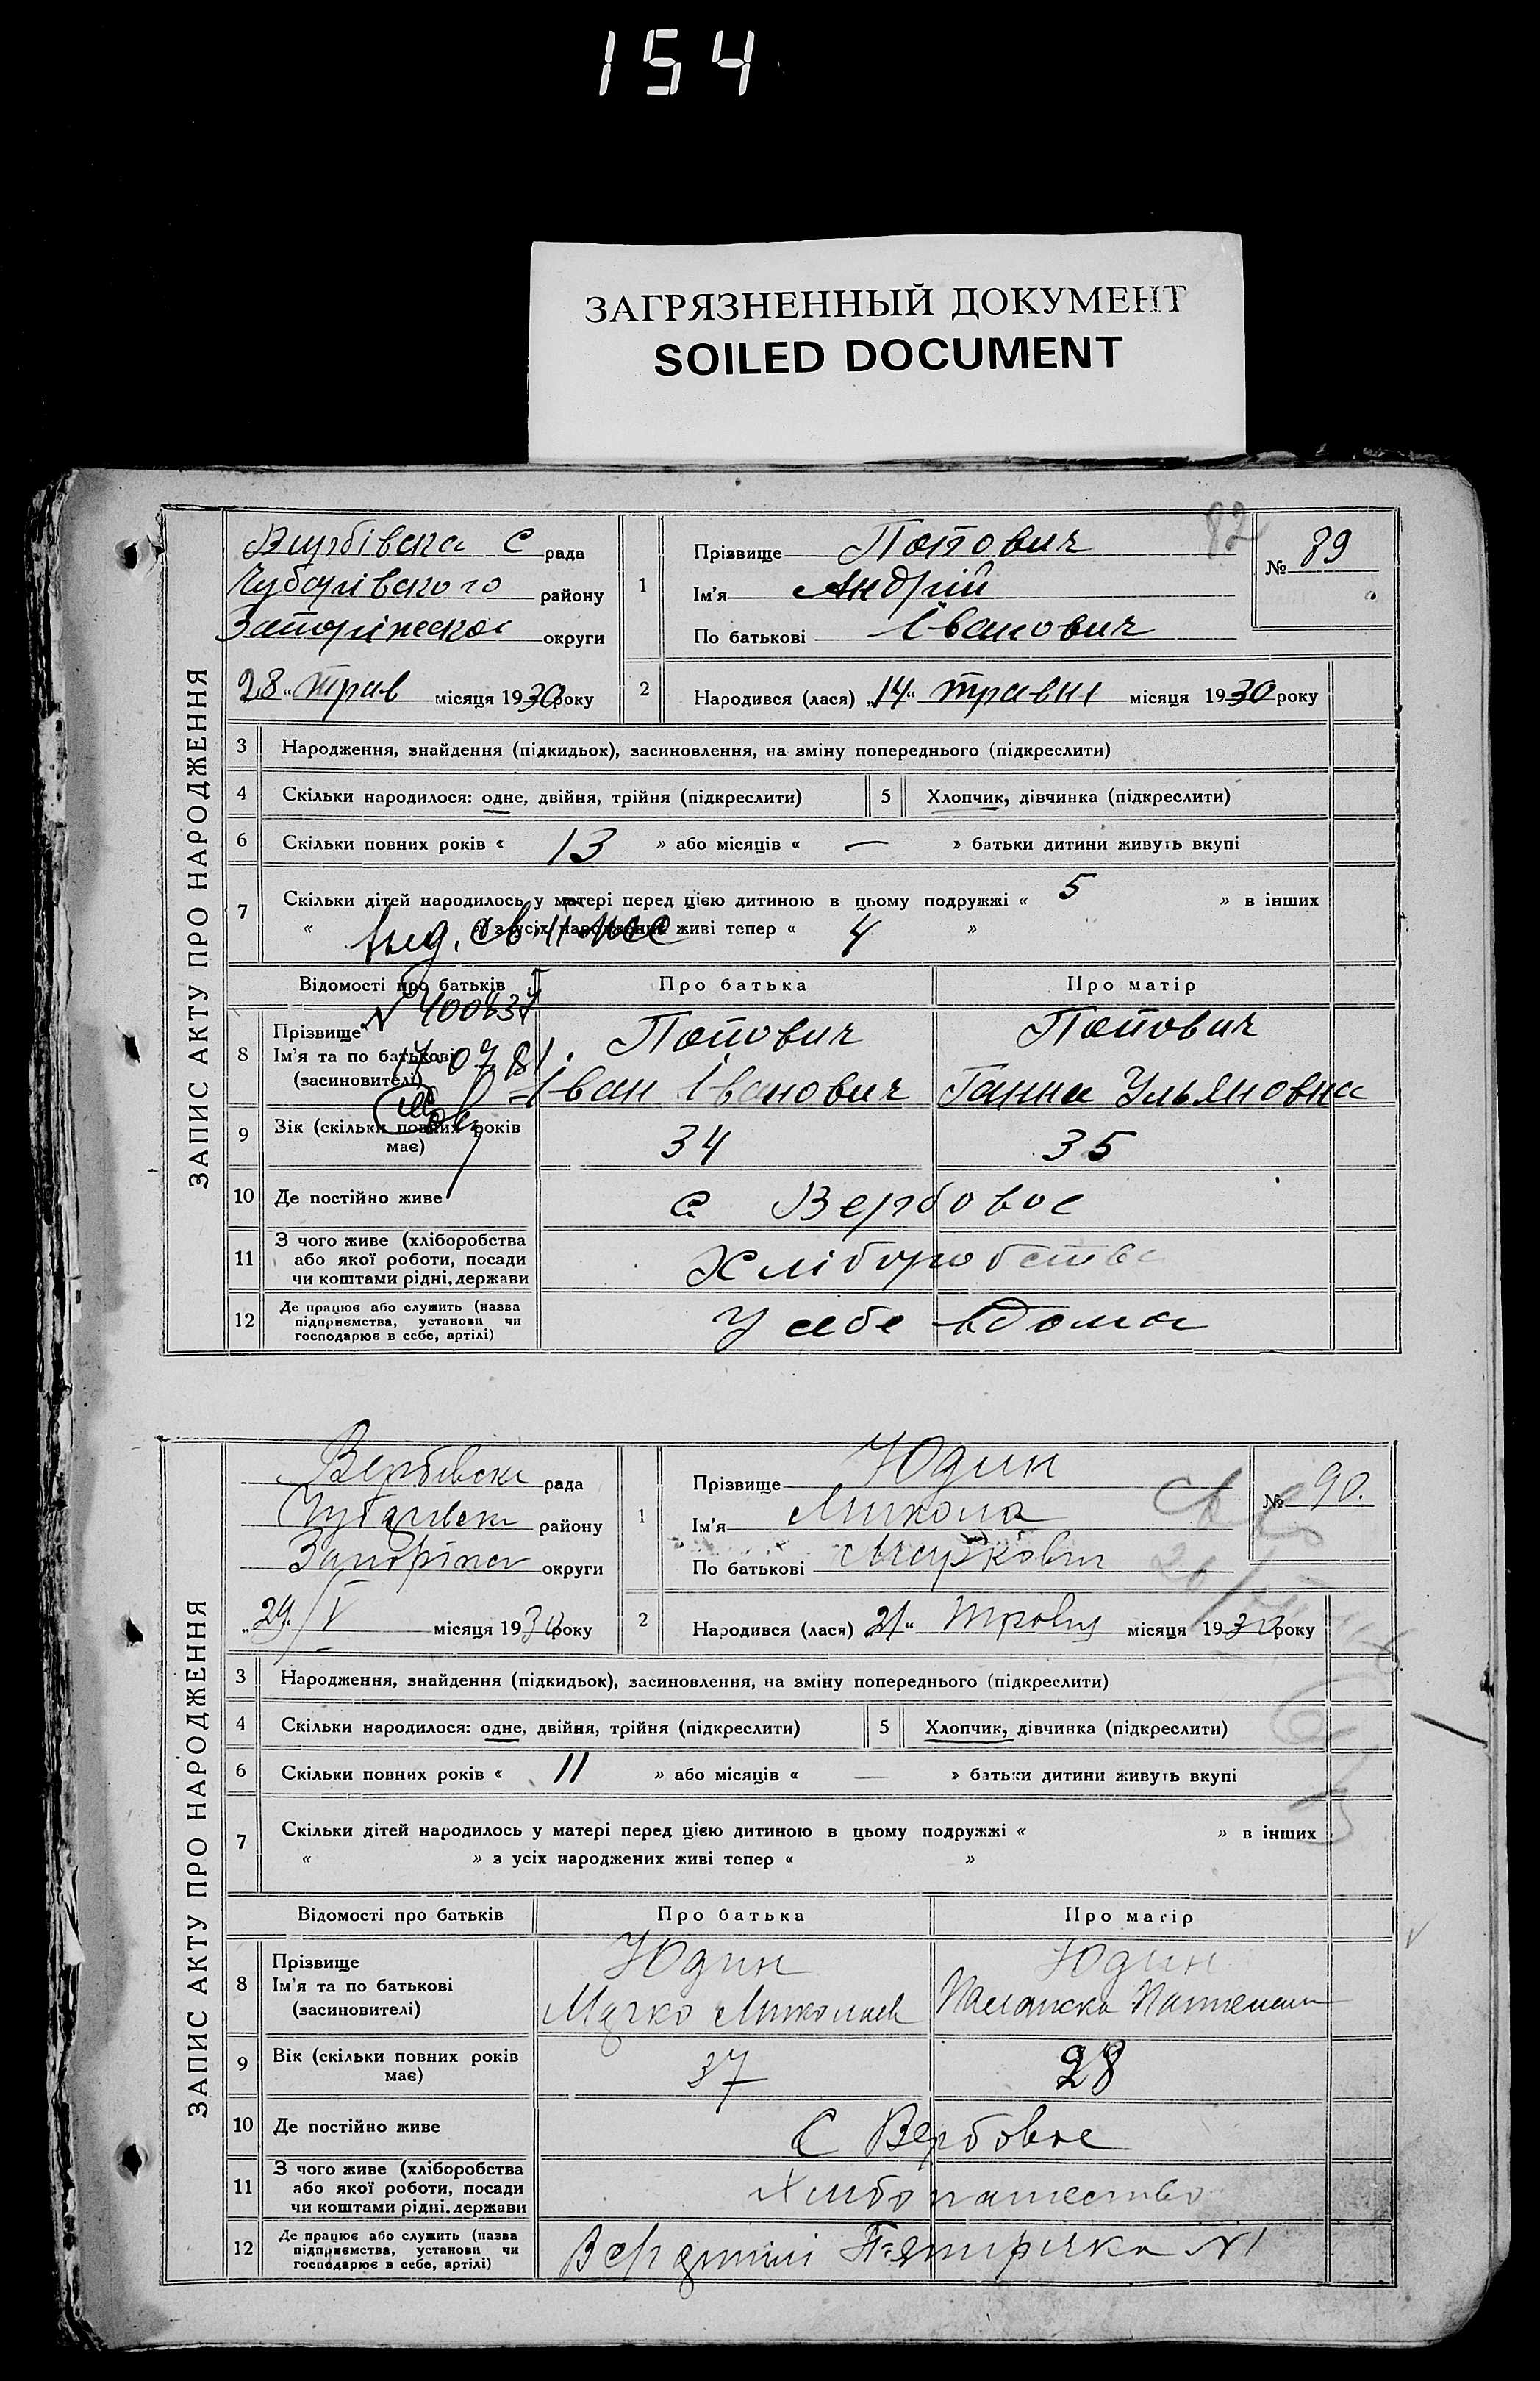 154
ЗАГРЯЗНЕННЫЙ ДОКУМЕНТ
SOILED DOCUMENT
82
ЗАПИС АКТУ ПРО НАРОДЖЕННЯ
Вербівська с рада
Чубарівського району
Запоріжської округи
28 "трав місяця 1930 року
1 Прізвище Попович
Ім'я Андрій
По батькові Іванович
№ 89
2 Народився (лася) „14" травня місяця 1930 року
3 Народження, знайдення (підкидьок), засиновлення, на зміну попереднього (підкреслити)
4 Скільки народилося: одне, двійня, трійня (підкреслити) 5 Хлопчик, дівчинка (підкреслити)
6 Скільки повних років « 13 » або місяців « — » батьки дитини живуть вкупі
7 Скільки дітей народилось у матері перед цією дитиною в цьому подружжі « 5 » в інших
« » з усіх народжених живі тепер « 4 »
Відомості про батьків Про батька Про матір
8 Прізвище Попович Попович
Ім'я та по батькові Іван Іванович Ганна Ульяновна
(засновителі)
9 Вік (скільки повних років має) 34 35
10 Де постійно живе с. Вербовое
11 З чого живе (хліборобства
або якої роботи, посади
чи коштами рідні, держави Хліборобства
12 Де працює або служить (назва
підприємства, установи чи
господарює в себе, артілі) У себе вдома
ЗАПИС АКТУ ПРО НАРОДЖЕННЯ
Вербівска рада
Чубарівськ району
Запоріжск округи
„29./V місяця 1930 року
1 Прізвище Юдин
Ім'я Микола
По батькові Маркович
№ 90.
2 Народився (лася) 21" травня місяця 1930 року
3 Народження, знайдення (підкидьок), засиновлення, на зміну попереднього (підкреслити)
4 Скільки народилося: одне, двійня, трійня (підкреслити) 5 Хлопчик, дівчинка (підкреслити)
6 Скільки повних років « 11 » або місяців « — » батьки дитини живуть вкупі
7 Скільки дітей народилось у матері перед цією дитиною в цьому подружжі « » в інших
« » з усіх народжених живі тепер « »
Відомості про батьків Про батька Про матір
8 Прізвище Юдин Юдин
Ім'я та по батькові Марко Миколаев
(засиновителі)
9 Вік (скільки повних років має) 37 28
10 Де постійно живе С Вербовое
11 З чого живе (хліборобства
або якої роботи, посади
чи коштами рідні, держави
12 Де працює або служить (назва
підприємства, установи чи
господарює в себе, артілі) В с/г артілі П-ятирічка №1